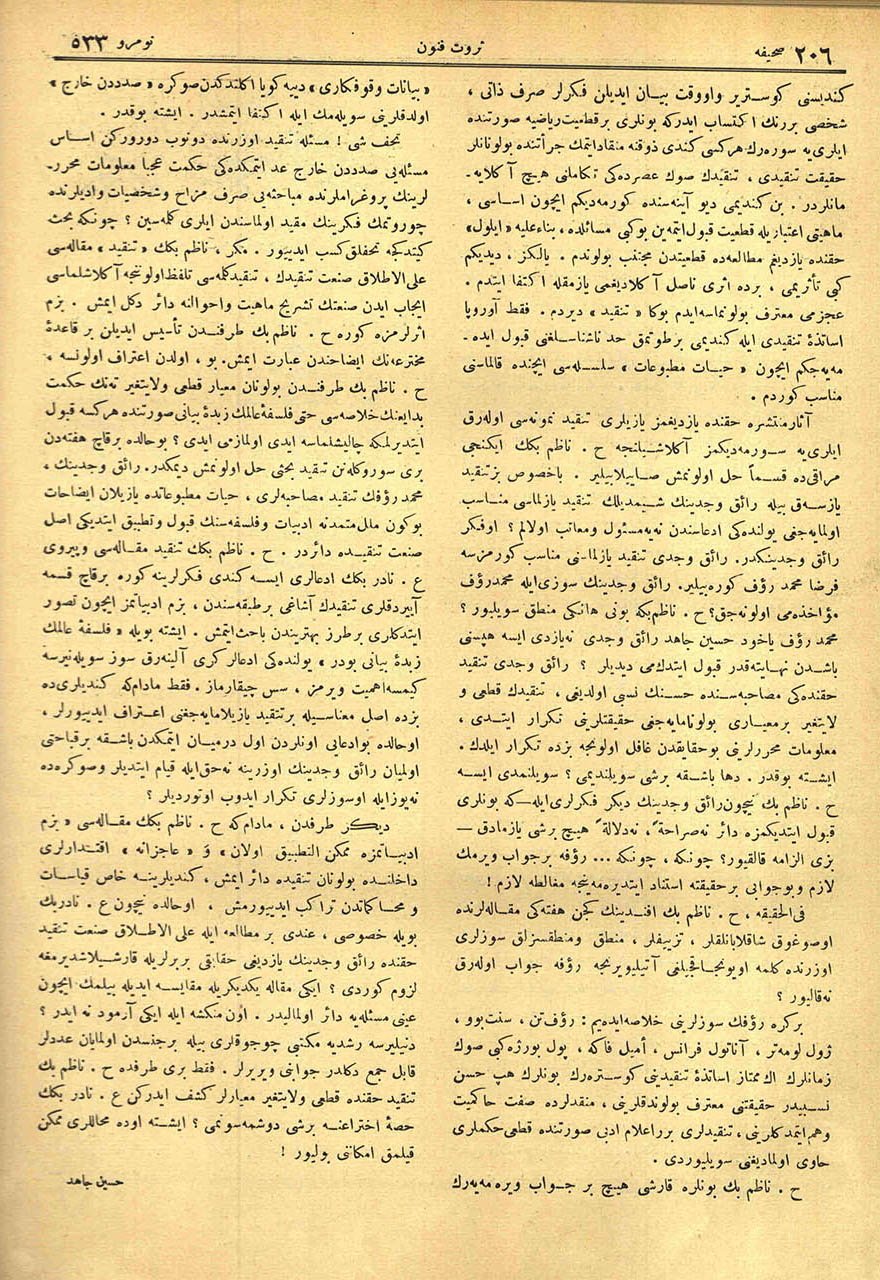 ٢٠٦ صحیفه
ثروت فنون
نومرو ٥٣٣
كندیسنی كوستریر واووقت بیان ایدیلن فكرلر صرف ذاتی ،
شخصی بررنك اكتساب ایدركه بونلری برقطعیت ریاضیه صورتنده
ایلری‌یه سوره‌رك هركسی كندی ذوقنه منقاد ایتمك جرأتنده بولونانلر
حقیقت تنقیدی ، تنقیدك صوك عصرده‌كی تكاملنی هیچ آكلایه‌ـ
مانلردر . بن كندیمی دیو آینه‌سنده كورمه‌دیكم ایچون اساسی ،
ماهیتی اعتباریله قطعیت قبول ایتمه‌ین بوكبی مسائلده ، بناءعلیه «ایلول»
حقنده یازدیغم مطالعه‌ده قطعیتدن مجتنب بولوندم . یالكز ، دیدیكم
كبی تأثریمی ، برده اثری ناصل آكلادیغمی یازمقله اكتفا ایتدم .
عجزمی معترف بولونماسه‌ایدم بوكا « تنقید » دیردم . فقط آوروپا
اساتذۀ تنقیدی ایله كندیمی برطوتمق حد ناشناسلغنی قبول ایده‌ـ
مه‌یه‌جكم ایچون « حیات مطبوعات » سلسله‌سی ایچنده قالماسنی
مناسب كوردم .
آثار منتشره حقنده یازدیغمز یازیلری تنقید نمونه‌سی اوله‌رق
ایلری‌یه سورمه‌دیكمز آكلاشیلنجه ح . ناظم بكك ایكنجی
مراقی‌ده قسماً حل اولونمش صاییلابیلیر . باخصوص بزتنقید
یازسه‌ق بیله رائق وجدینك شیمدیلك تنقید یازلماسی مناسب
اولمایه‌جغی یولنده‌كی ادعاسندن نه‌یه مسئول ومعاتب اولالم ؟ اوفكر
رائق وجدینكدر. رائق وجدی تنقید یازلماسنی مناسب كورمزسه
فرضا محمد رؤف كوره‌بیلیر. رائق وجدینك سوزی‌ایله محمدرؤف
مؤاخذه‌می اولونه‌جق؟ ح . ناظم‌بكه بونی هانكی منطق سویلیور ؟
محمد رؤف یاخود حسین جاهد رائق وجدی نه‌یازدی ایسه هپسنی
باشدن نهایته‌قدر قبول ایتدك‌می دیدیلر ؟ رائق وجدی تنقید
حقنده‌كی مصاحبه‌سنده حسنك نسبی اولدیغی ، تنقیدك قطعی و
لایتغیر برمعیاری بولونامایه‌جغی حقیقتلرینی تكرار ایتدی ،
معلومات محررلرینی بوحقایقدن غافل اولونجه بزده تكرار ایلدك .
ایشته بوقدر. دها باشقه برشی سویلندیمی ؟ سویلنمدی ایسه
ح . ناظم بك نیچون رائق وجدینك دیكر فكرلری‌ایله ــ كه بونلری
قبول ایتدیكمزه دائر نه‌صراحةً، نه‌دلالةً هیچ برشی یازمادق ــ
بزی الزامه قالقیور؟ چونكه ، چونكه ... رؤفه برجواب ویرمك
لازم وبوجوابی برحقیقته استناد ایتدیره‌مه‌ینجه مغالطه لازم !
فی‌الحقیقه ، ح . ناظم بك افندینك كچن هفته‌كی مقاله‌لرنده
اوصوغوق شاقلابانلقلر ، تزییفلر ، منطق ومنطقسزلق سوزلری
اوزرنده كلمه اویونجاقجیلغی آتیلیویرنجه رؤفه جواب اوله‌رق
نه‌قالیور ؟
بركره رؤفك سوزلرینی خلاصه‌ایده‌یم : رؤف‌تن ، سنت‌بوو ،
ژول لومه‌تر ، آناتول فرانس ، أمیل فاكه ، پول بورژه‌كبی صوك
زمانلرك اك ممتاز اساتذۀ تنقیدینی كوستره‌رك بونلرك هپ حسن
نسبیدر حقیقتنی معترف بولوندقلرینی ، منقدلرده صفت حاكمیت
وهم‌ایتمدكلرینی، تنقیدلری برر اعلام ادبی صورتنده قطعی‌حكملری
حاوی اولمادیغنی سویلیوردی .
ح . ناظم بك بونلره قارشی هیچ بر جواب ویره‌مه‌یه‌رك
«بیانات وقوفكاری» دییه كویا اكلندكدن‌صوكره « صدددن خارج»
اولدقلرینی سویله‌مك ایله اكتفا ایتمشدر. ایشته بوقدر.
تحف شی ! مسئله تنقید اوزرنده دونوب دورورکن اساس
مسئله‌یی صدددن خارج عد ایتمكده‌كی حكمت عجبا معلومات محررـ
لرینك پروغراملرنده مباحثه‌یی صرف مزاح وشخصیات وادیلرنده
چوروتمك فكرینك مقید اولماسندن ایلری كلمه‌سین ؟ چونكه بحث
كیتدكجه تحفلق كسب ایدییور . مكر ، ناظم بكك « تنقید » مقاله‌سی
علی‌الاطلاق صنعت تنقیدك ، تنقید كلمه‌سی تلفظ اولوننجه آكلاشلماسی
ایجاب ایدن صنعتك تشریح ماهیت واحوالنه دائر دكل ایمش . بزم
اثرلرمزه كوره ح . ناظم بك طرفندن تأسیس ایدیلن بر قاعدۀ
مخترعه‌نك ایضاحندن عبارت ایمش. بو ، اولدن اعتراف اولونسه ،
ح . ناظم بك طرفندن بولونان معیار قطعی ولایتغیر ته‌نك حكمت
بدایعنك خلاصه‌سی حتی فلسفۀ عالمك زبدۀ بیانی صورتنده هركسه قبول
ایتدیرلمكه چالیشلماسه ایدی اولمازمی ایدی ؟ بوحالده برقاچ هفته‌دن
بری سوروكلنن تنقید بحثی حل اولونمش دیمكدر. رائق وجدینك ،
محمد رؤفك تنقید مصاحبه‌لری ، حیات مطبوعاتده یازیلان ایضاحات
بوكون ملل‌متمدنه ادبیات وفلسفه‌سنك قبول وتطبیق ایتدیكی اصل
صنعت تنقیده دائردر . ح . ناظم بكك تنقید مقاله‌سی وپیروی
ع . نادر بكك ادعالری ایسه كندی فكرلرینه كوره برقاچ قسمه
آییردقلری تنقیدك آشاغی برطبقه‌سندن ، بزم ادبیاتمز ایچون تصور
ایتدكلری برطرز بهتریندن باحث‌ایتمش . ایشته بویله « فلسفۀ عالمك
زبدۀ بیانی بودر » یولنده‌كی ادعالر كری آلینه‌رق سوز سویله‌نیرسه
كیمسه‌اهمیت ویرمز ، سس چیقارماز. فقط مادام‌كه كندیلری‌ده
بزده اصل معناسیله برتنقید یازیلامایه‌جغنی اعتراف ایدییورلر ،
اوحالده بوادعایی اونلردن اول درمیان ایتمكدن باشقه برقباحتی
اولمیان رائق وجدینك اوزرینه نه‌حق‌ایله قیام ایتدیلر وصوكره‌ده
نه‌یوزایله اوسوزلری تكرار ایدوب اوتوردیلر ؟
دیكر طرفدن ، مادام‌كه ح . ناظم بكك مقاله‌سی « بزم
ادبیاتمزه ممكن التطبیق اولان » و « عاجزانه » اقتدارلری
داخلنده بولونان تنقیده دائر ایمش ، كندیلرینه خاص قیاسات
و محاكماتدن تراكب ایدییورمش ، اوحالده نیچون ع . نادربك
بویله خصوصی ، عندی بر مطالعه ایله علی الاطلاق صنعت تنقید
حقنده رائق وجدینك یازدیغی حقایقی بربرلریله قارشیلاشدیرمغه
لزوم كوردی ؟ ایكی مقاله یكدیكریله مقایسه ایدیله بیلمك ایچون
عینی مسئله‌یه دائر اولمالیدر. اون منكشه ایله ایكی آرمود نه ایدر ؟
دنیلیرسه رشدیه مكتبی چوجوقلری بیله برجنسدن اولمایان عددلر
قابل جمع دكلدر جوابنی ویریرلر . فقط بری طرفده ح . ناظم بك
تنقید حقنده قطعی ولایتغیر معیارلر كشف ایدركن ع . نادر بكك
حصۀ اختراعنه برشی دوشمه‌سونمی ؟ ایشته اوده محاللری ممكن
قیلمق امكاننی بولیور !
حسین جاهد